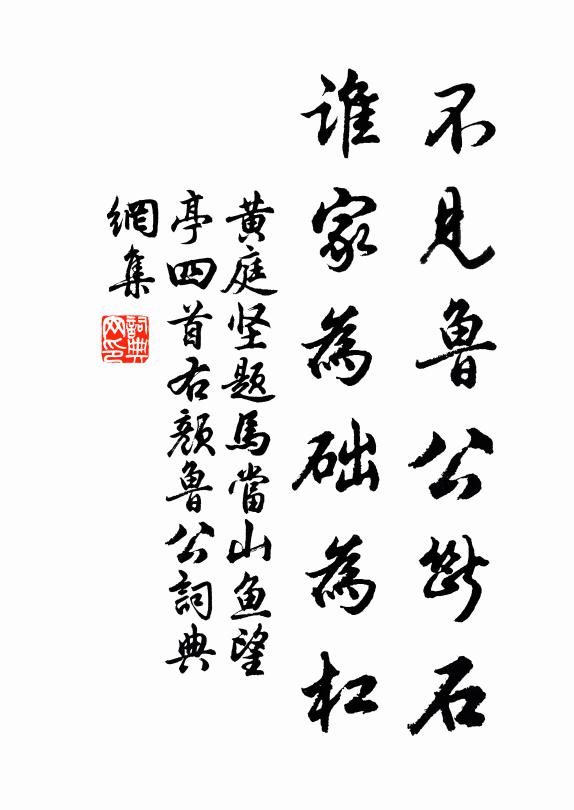 不見魯公斷石
誰家為礎為杠
黃庭坚題馬當山魚望
亭四首右顏魯公詞典
網集
詞典網印